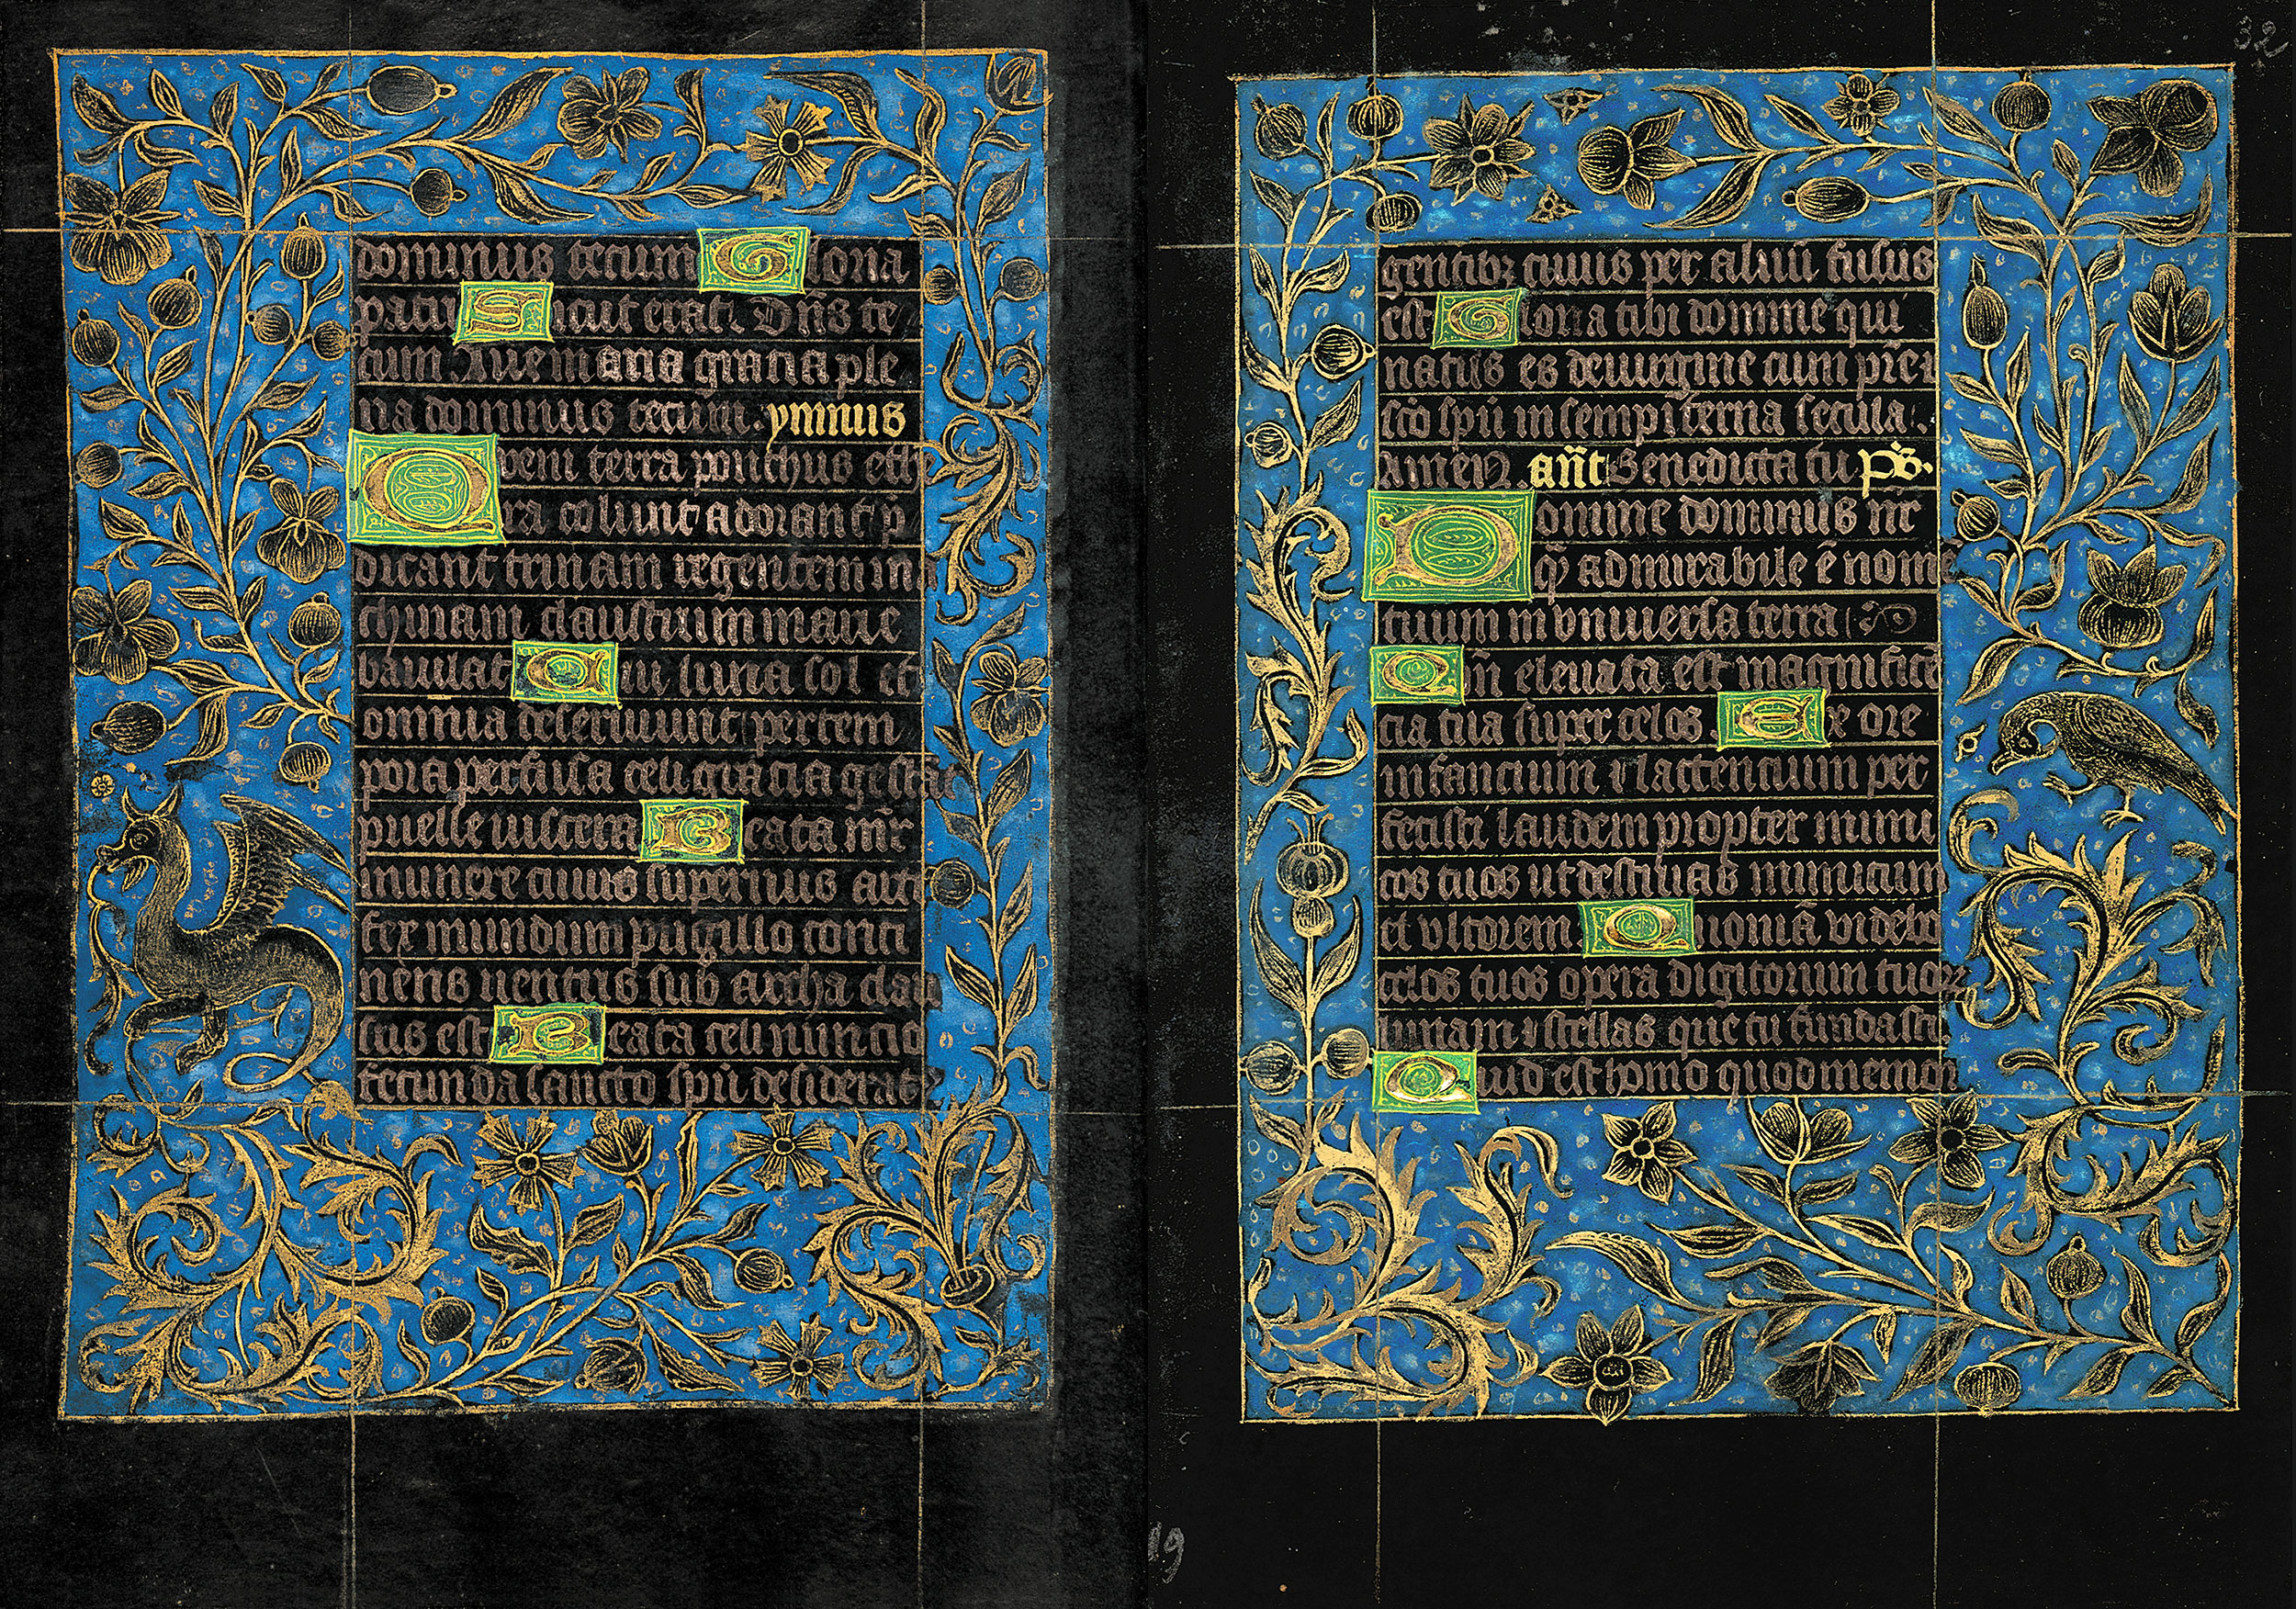 dominus tecum Gloria
patri Sicut erat. Dn̄s te
cum Aue maria gracia ple
na dominus tecum. ymnus
Quem terra ponthus ethe
ra colunt adorant p̄
dicant trinam regentem ma
chinam claustrum marie
baiulat Cui luna sol et
omnia deseruiunt per tem
pora perfusa celi gracia gestāt
puelle uiscera Beata mr̄
munere cuius supernus arti
fex mundum pugillo conti
nens uentris sub archa clau
sus est Beata celi nuncio
fecunda sancto spū desiderat9
32
gentibz cuius per aluū fusus
est Gloria tibi domine qui
natus es de uirgine cum pr̄e ⁊
scō spū in sempiterna secula.
Amen. an̄t Benedicta tu ps̄.
Domine dominus nr̄
q̄ admirabile ē nomē
tuum in vniuersa terra
Qm̄ eleuata est magnificē
cia tua super celos. Ex ore
infancium ⁊ lactencium per
fecisti laudem propter inimi
cos tuos ut destruas inimicum
et vltorem Quoniā videbo
celos tuos opera digitorum tuoꝝ
lunam ⁊ stellas que tu fundasti
Quid est homo quod memor
19